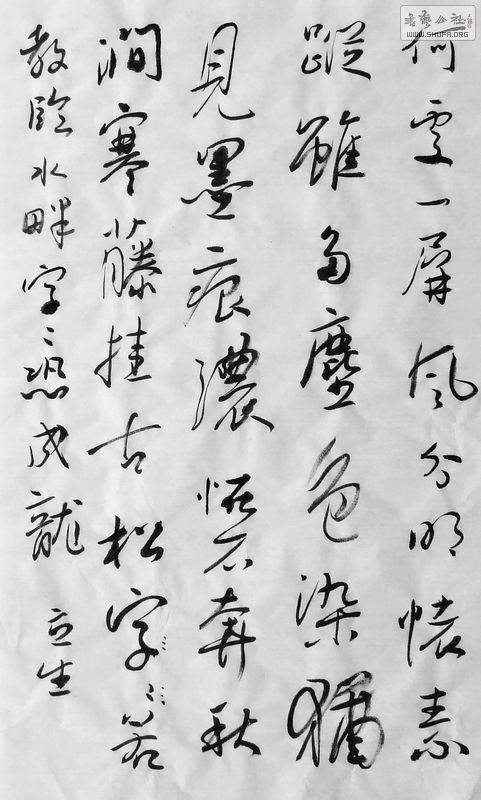 書藝公社
WWW.SHUFA.ORG
何處一屏風分明懷素
蹤雖多塵色染猶
見墨痕濃怪石奔秋
澗寒藤挂古松字〻若
教臨水畔字〻恐成龍
立生